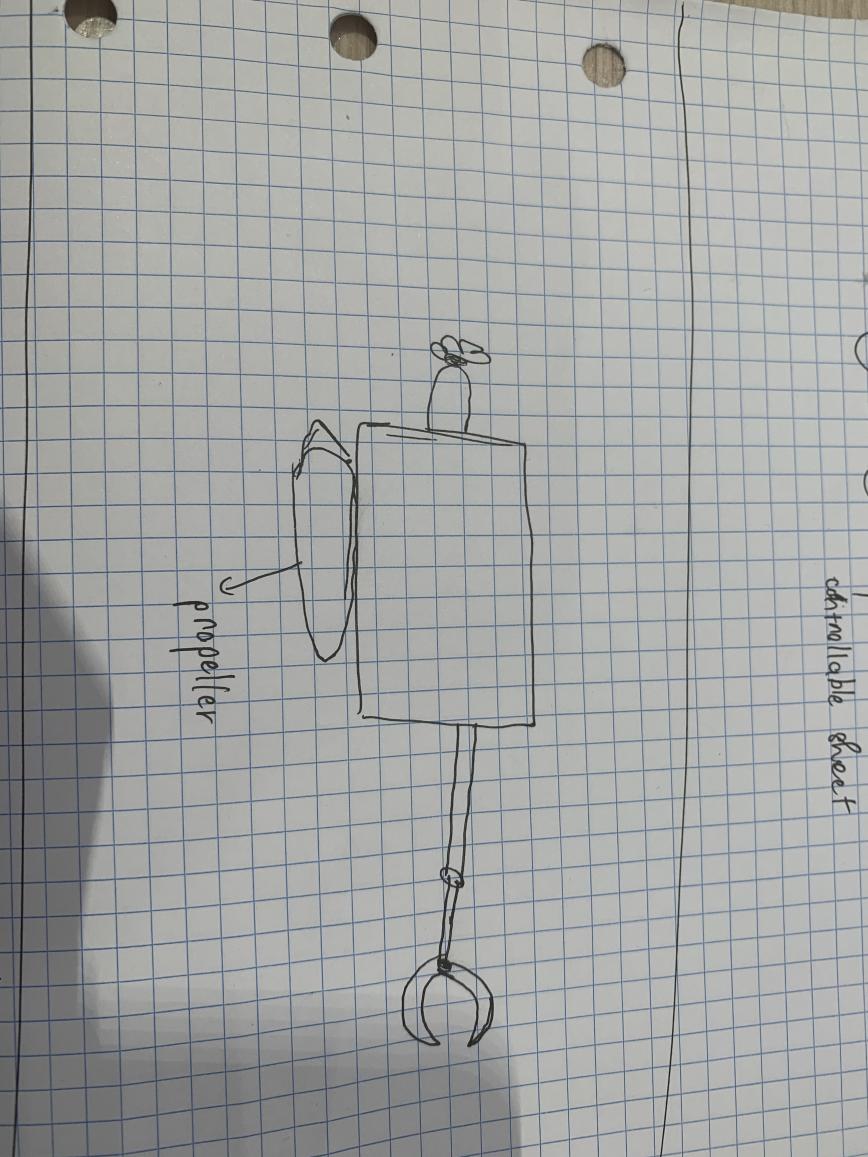 controllable sheet
propeller